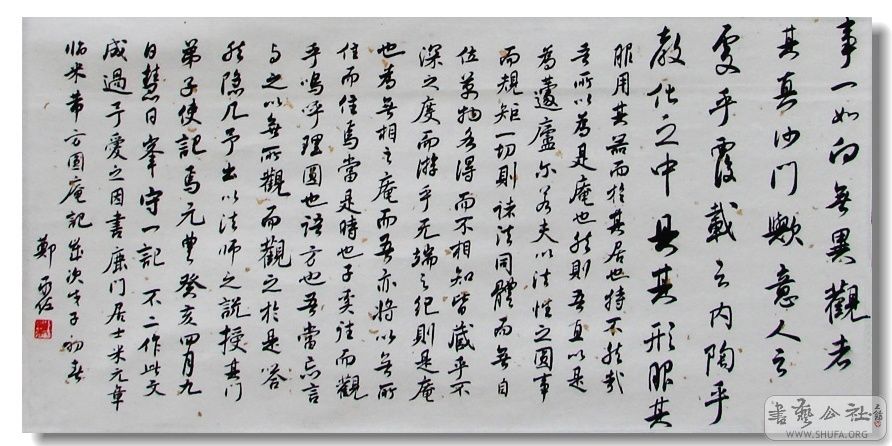 事一如向無異觀者
其真沙門歟意人之
處乎覆載之内陶乎
教化之中具其形服其
服用其器而於其居也特不然哉
吾所以為是庵也然則吾直以是
為蘧廬尔若夫以法性之圓事
而規矩一切則諸法同體而無自
位萬物各得而不相知皆藏乎不
深之度而游乎无端之紀則是庵
也為無相之庵而吾亦將以無所
住而住焉當是時也子奚往而觀
乎嗚呼理圓也語方也吾當忘言
与之以無所觀而觀之於是嗒
然隱几予出以法師之說授其門
弟子使記焉元豐癸亥四月九
日慧日峯守一記 不二作此文
成過予愛之因書鹿門居士米元章
临米芾方圆庵記 歲次戊子初春
鄭
書藝公社
WWW.SHUFA.ORG